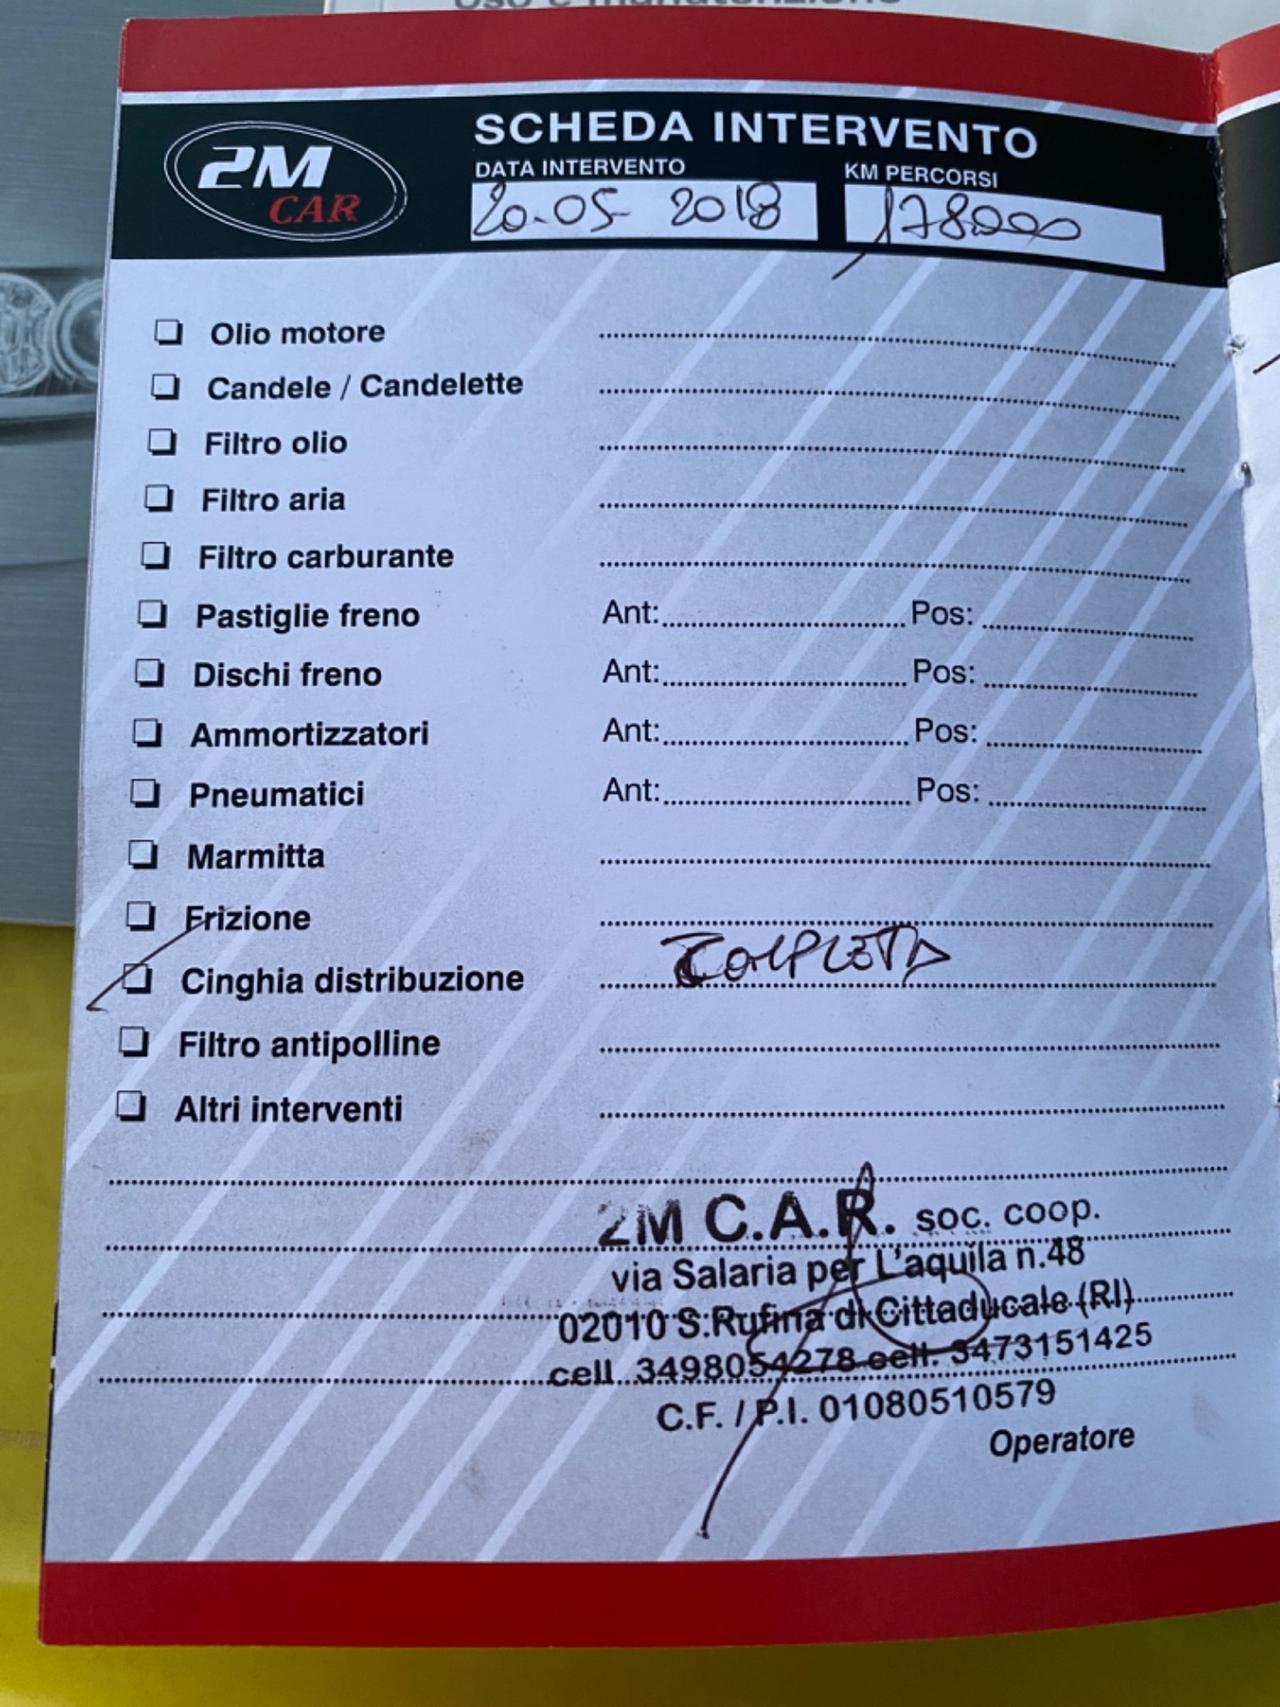 Uso e manutenzione
2M
CAR
SCHEDA INTERVENTO
DATA INTERVENTO KM PERCORSI
20-05 2018 178000
❏ Olio motore
❏ Candele / Candelette
❏ Filtro olio
❏ Filtro aria
❏ Filtro carburante
❏ Pastiglie freno Ant: Pos:
❏ Dischi freno Ant: Pos:
❏ Ammortizzatori Ant: Pos:
❏ Pneumatici Ant: Pos:
❏ Marmitta
❏ Frizione
❏ Cinghia distribuzione COMPLETA
❏ Filtro antipolline
❏ Altri interventi
2M C.A.R. soc. coop.
via Salaria per L'aquila n.48
02010 S.Rufina di Cittaducale (RI)
cell. 3498054278 cell. 3473151425
C.F. / P.I. 01080510579
Operatore